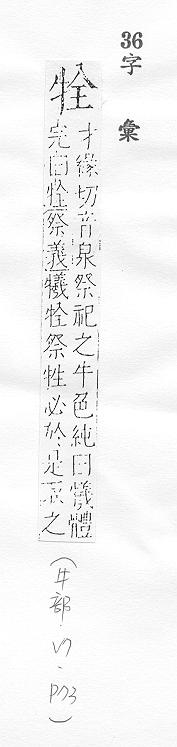 36
字彙
牷
才緣切音泉祭祀之牛色純曰犧體
完曰牷祭義犧牷祭牲必於是取之
(牛部·
p73)